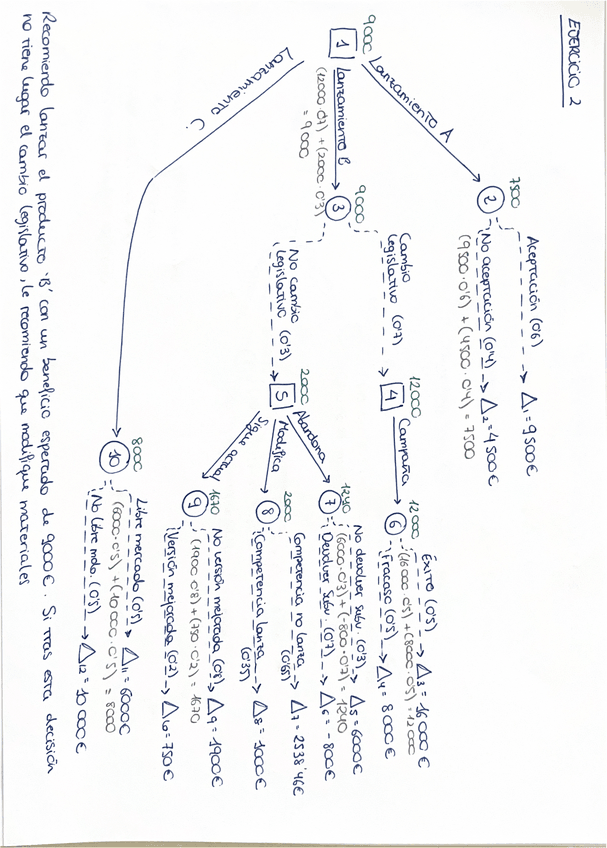 EJERCICIO 2
7500
Aceptación (0'6) → △1 = 9500€
2
No aceptación (0'4) → △2 = 4500€
(9500·0'6) + (4500·0'4) = 7500
Lanzamiento A
9000
1
Lanzamiento B
(12000·0'7) + (2000·0'3)
= 9000
9000
3
Cambio
legislativo (0'7)
12000
4
Campaña
12000
6
Éxito (0'5) → △3 = 16000€
(16000·0'5) + (8000·0'5) = 12000
Fracaso (0'5) → △4 = 8000€
No cambio
legislativo (0'3)
2000
5
Abandona
1240
7
No devolver subv. (0'3) → △5 = 6000€
(6000·0'3) + (-800·0'7) = 1240
Devolver subv. (0'7) → △6 = -800€
Modifica
2000
8
Competencia no lanza → △7 = 2538'46€
(0'65)
Competencia lanza → △8 = 1000€
(0'35)
Sigue actual
1670
9
No versión mejorada (0'8) → △9 = 1900€
(1900·0'8) + (750·0'2) = 1670
Versión mejorada (0'2) → △10 = 750€
Lanzamiento C
8000
10
Libre mercado (0'5) → △11 = 6000€
(6000·0'5) + (10000·0'5) = 8000
No libre mdo. (0'5) → △12 = 10000€
Recomiendo lanzar el producto 'B' con un beneficio esperado de 9000€. Si tras esta decisión
no tiene lugar el cambio legislativo, le recomiendo que modifique materiales